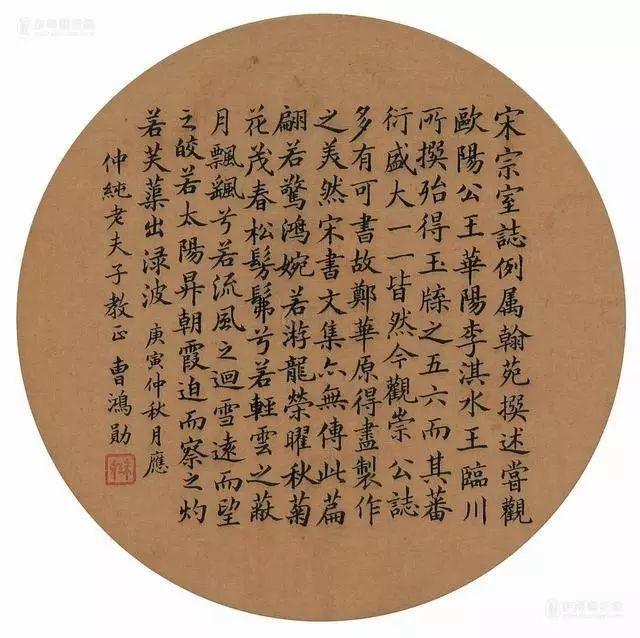 宋宗室誌例属翰苑撰述嘗觀
歐陽公王華陽李淇水王臨川
所撰殆得玉牒之五六而其蕃
衍盛大一一皆然今觀崇公誌
多有可書故鄭華原得盡製作
之美然宋書文集亦無傳此篇
翩若驚鴻婉若游龍榮曜秋菊
花茂春松髣髴兮若輕雲之蔽
月飄颻兮若流風之迴雪遠而望
之皎若太陽昇朝霞迫而察之灼
若芙蕖出渌波 庚寅仲秋月應
仲純老夫子教正 曹鴻勛